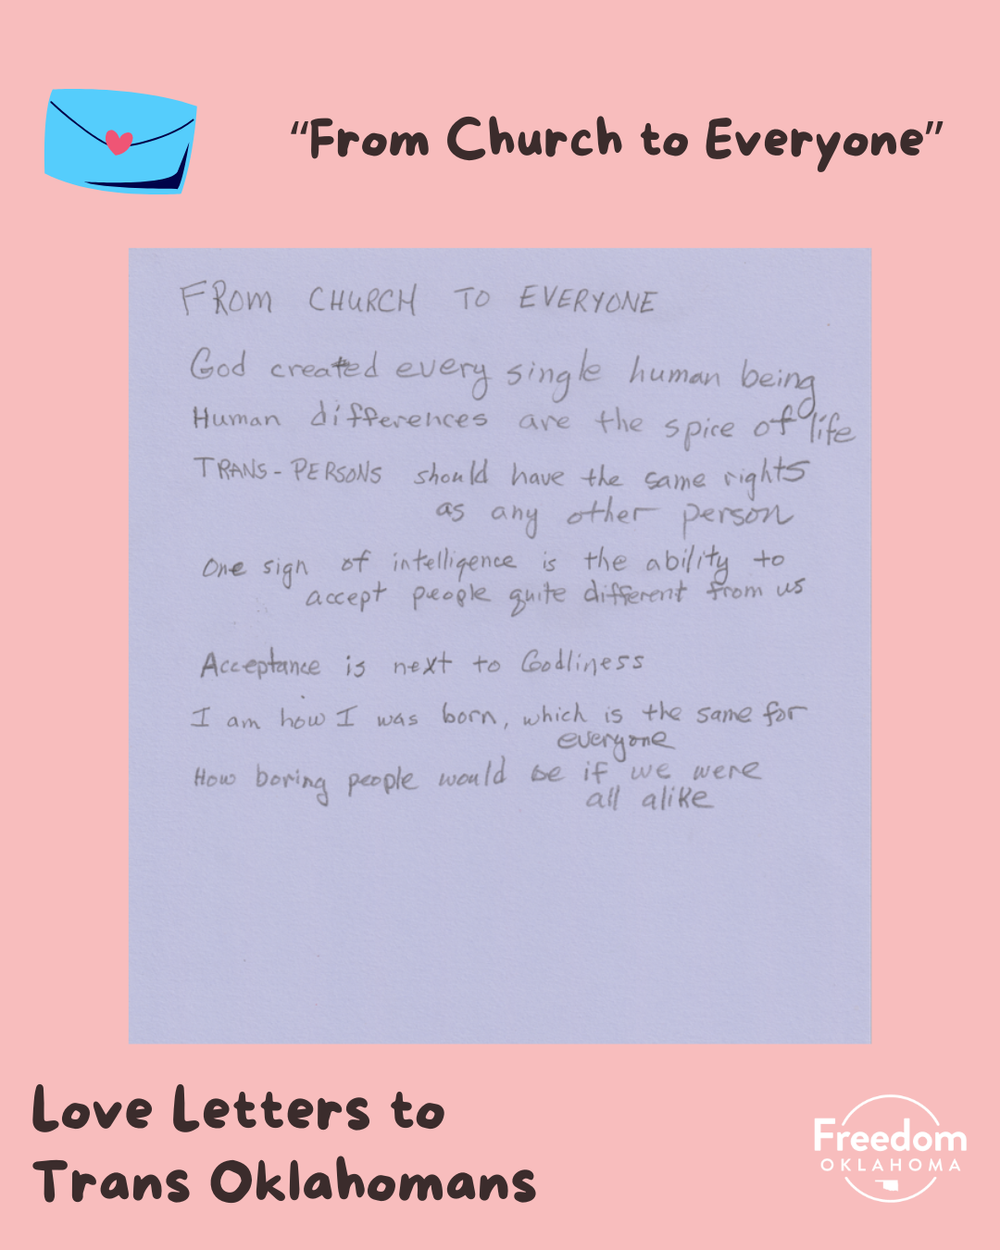 “From Church to Everyone”
FROM CHURCH TO EVERYONE
God created every single human being
Human differences are the spice of life
TRANS-PERSONS should have the same rights
as any other person
One sign of intelligence is the ability to
accept people quite different from us
Acceptance is next to Godliness
I am how I was born, which is the same for
everyone
How boring people would be if we were
all alike
Love Letters to
Trans Oklahomans
Freedom
OKLAHOMA